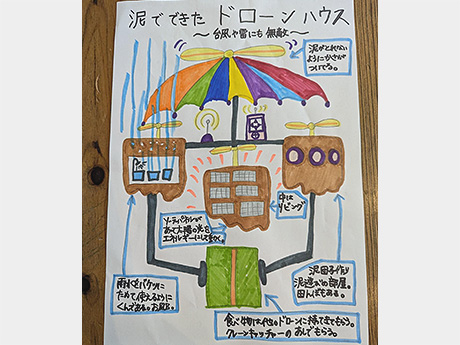 泥でできた ドローンハウス
～台風や雷にも無敵～
泥がとれない
ようにかさが
ついてる。
中は
リビング
ソーラーパネルが
あって太陽の光を
エネルギーにしてうごく。
雨水をバケツに
ためて使えるように
くんである。お風呂
泥団子作り
泥遊びの部屋。
田んぼもある。
食べ物は他のドローンに持ってきてもらう。
クレーンキャッチャーの